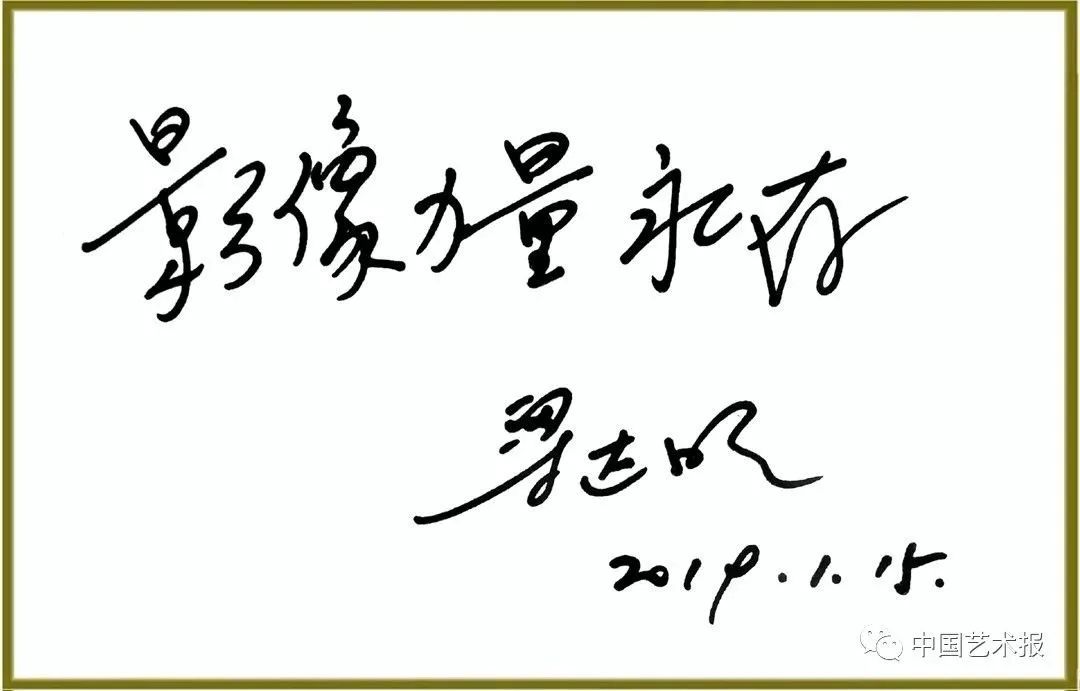 影像力量永存
梁达明
2019.1.15.
中国艺术报